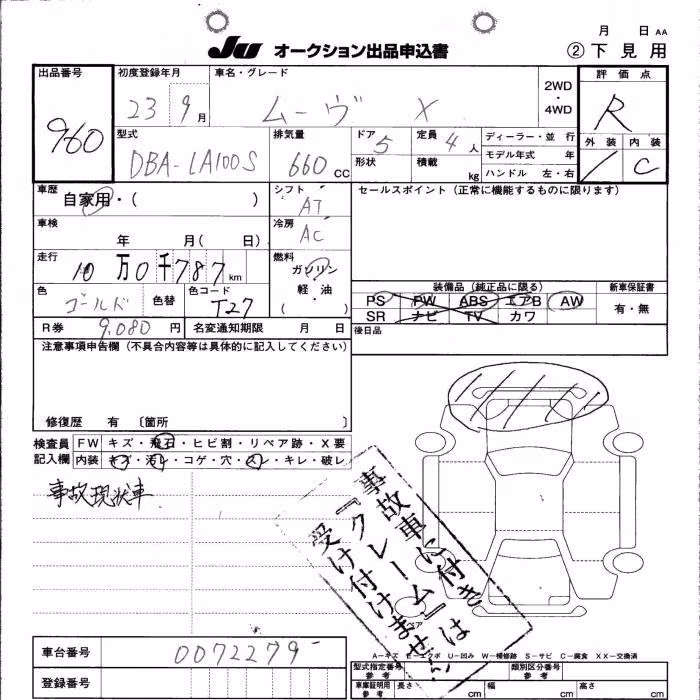 月 日 AA
JU オークション出品申込書 ②下見用
出品番号 初度登録年月 車名・グレード 2WD・4WD 評価点
960 23 9月 ムーヴ X R
型式 排気量 ドア 5 定員 4人 ディーラー・並行 外装 内装
DBA-LA100S 660CC 形状 積載 kg モデル年式 年 / C
ハンドル 左・右
車歴 自家用・( ) シフト AT セールスポイント(正常に機能するものに限ります)
車検 年 月( 日) 冷房 AC
走行 10万0千787km 燃料 ガソリン 軽・油 ( )
装備品(純正品に限る) 新車保証書
色 ゴールド 色替 色コード T27 PS PW ABS エアB AW 有・無
SR ナビ TV カワ
R券 9,080円 名変通知期限 月 日 後日品
注意事項申告欄(不具合内容等は具体的に記入してください)
修復歴 有 〔箇所 〕
検査員 FW キズ・飛石・ヒビ割・リペア跡・X要
記入欄 内装 キズ・汚レ・コゲ・穴・スレ・キレ・破レ
事故現状車
事故車に付き
『クレーム』は
受け付けません
車台番号 0072279
A-キズ E-エクボ U-凹み W-補修跡 S-サビ C-腐食 XX-交換済
登録番号 型式指定番号 参考 類別区分番号 参考
車庫証明用 参考 長さ cm 幅 cm 高さ cm